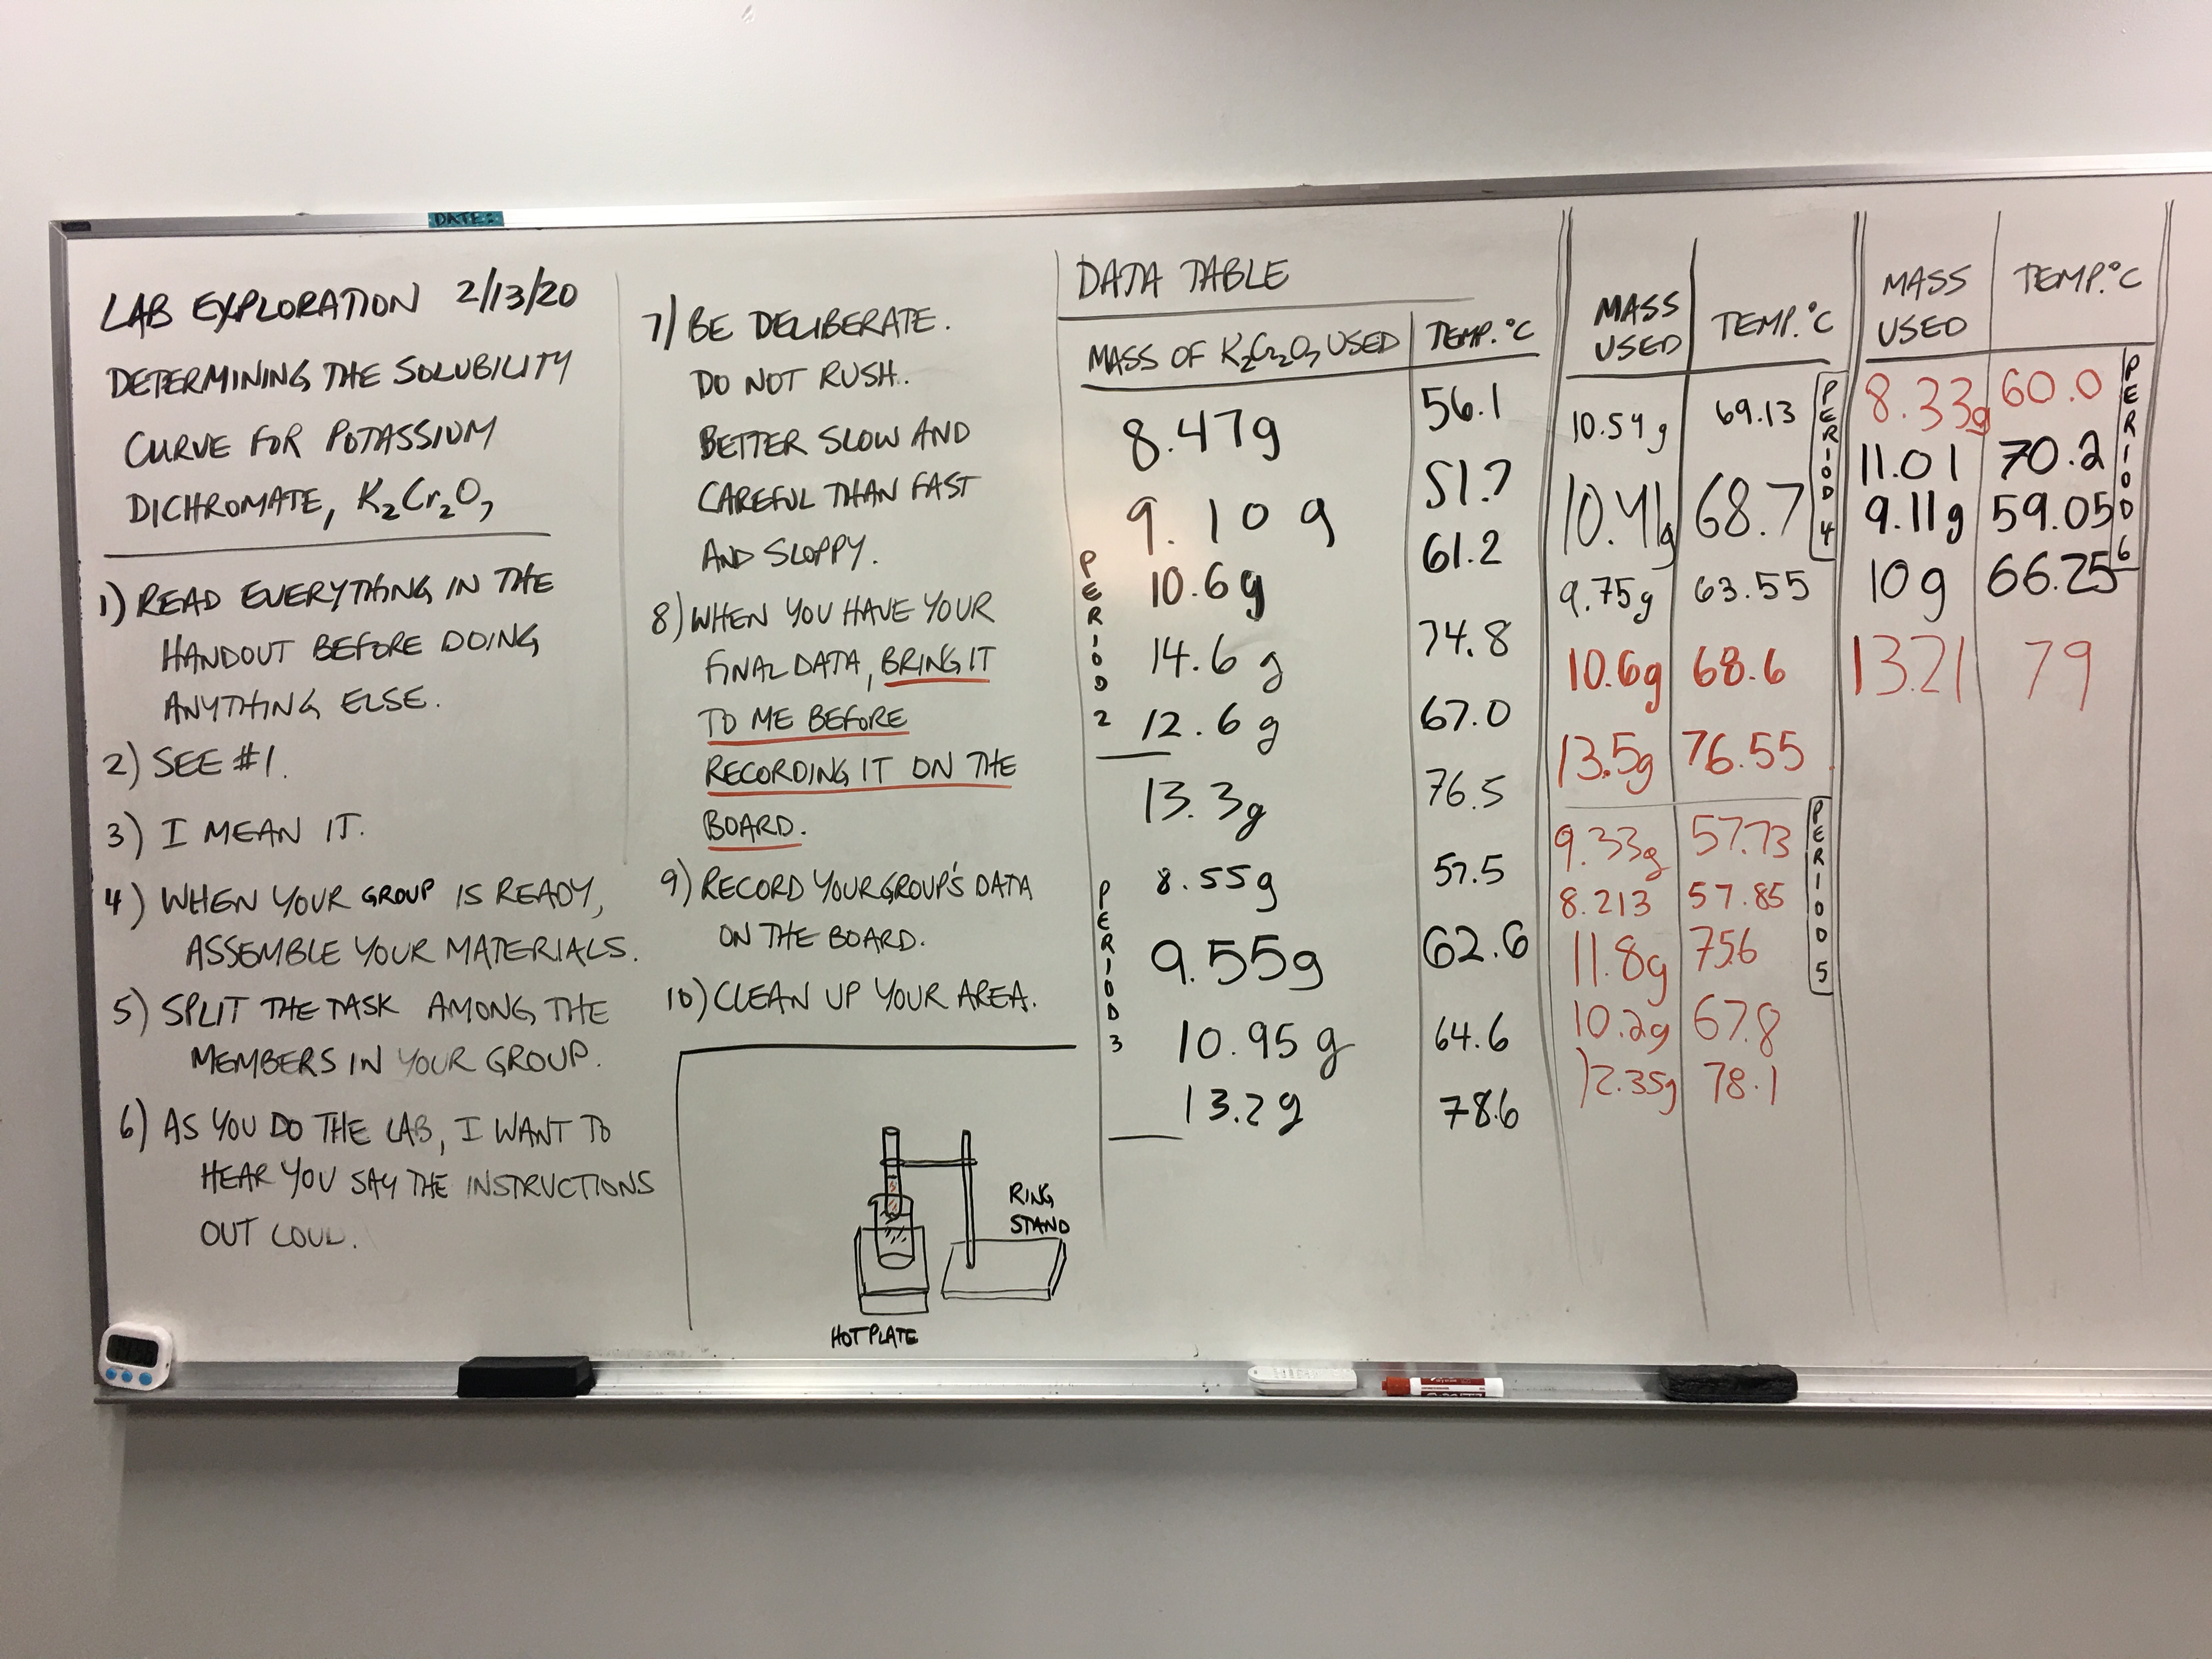 DATE:
LAB EXPLORATION 2/13/20
DETERMINING THE SOLUBILITY
CURVE FOR POTASSIUM
DICHROMATE, K₂Cr₂O₇
1) READ EVERYTHING IN THE
HANDOUT BEFORE DOING
ANYTHING ELSE.
2) SEE #1.
3) I MEAN IT.
4) WHEN YOUR GROUP IS READY,
ASSEMBLE YOUR MATERIALS.
5) SPLIT THE TASK AMONG THE
MEMBERS IN YOUR GROUP.
6) AS YOU DO THE LAB, I WANT TO
HEAR YOU SAY THE INSTRUCTIONS
OUT LOUD.
7) BE DELIBERATE.
DO NOT RUSH.
BETTER SLOW AND
CAREFUL THAN FAST
AND SLOPPY.
8) WHEN YOU HAVE YOUR
FINAL DATA, BRING IT
TO ME BEFORE
RECORDING IT ON THE
BOARD.
9) RECORD YOUR GROUP'S DATA
ON THE BOARD.
10) CLEAN UP YOUR AREA.
RING
STAND
HOT PLATE
DATA TABLE
MASS OF K₂Cr₂O₇ USED TEMP. °C
PERIOD 2
8.47g 56.1
9.10 g 51.7
10.6g 61.2
14.6 g 74.8
12.6 g 67.0
PERIOD 3
13.3g 76.5
8.55g 57.5
9.55g 62.6
10.95 g 64.6
13.2g 78.6
MASS
USED TEMP. °C
PERIOD 4
10.54g 69.13
10.41g 68.7
9.75g 63.55
10.6g 68.6
13.5g 76.55
PERIOD 5
9.33g 57.73
8.213 57.85
11.8g 75.6
10.2g 67.8
12.35g 78.1
MASS
USED TEMP. °C
PERIOD 6
8.33g 60.0
11.01 70.2
9.11g 59.05
10g 66.25
13.21 79